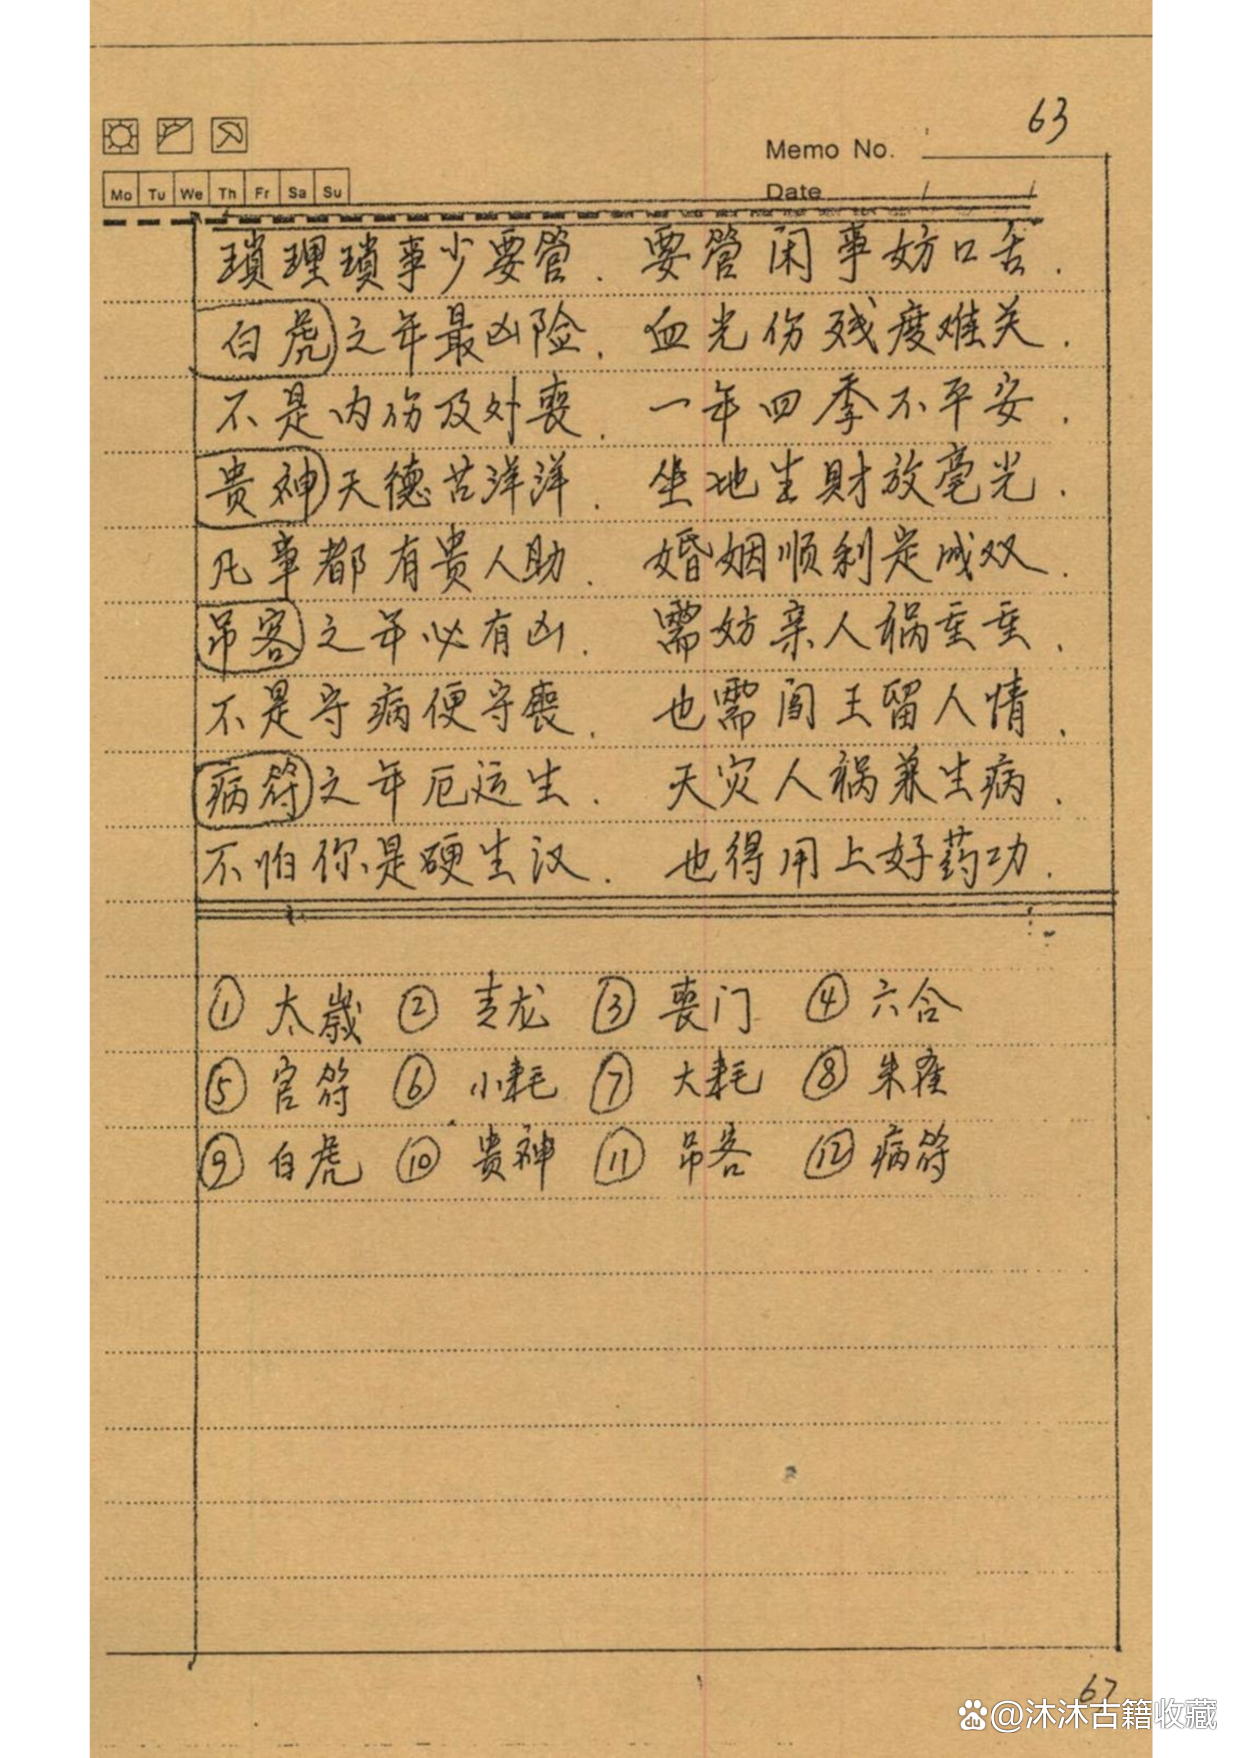 63
Memo No.
Mo Tu We Th Fr Sa Su
Date / /
琐理琐事少要管. 要管闲事妨口舌.
白虎之年最凶险. 血光伤残度难关.
不是内伤及外丧. 一年四季不平安.
贵神天德苦洋洋. 坐地生财放毫光.
凡事都有贵人助. 婚姻顺利定成双.
吊客之年必有凶. 需妨亲人祸重重.
不是守病便守丧. 也需阎王留人情.
病符之年厄运生. 天灾人祸兼生病.
不怕你是硬生汉. 也得用上好药功.
① 太歲 ② 青龙 ③ 喪门 ④ 六合
⑤ 官符 ⑥ 小耗 ⑦ 大耗 ⑧ 朱雀
⑨ 白虎 ⑩ 贵神 ⑪ 吊客 ⑫ 病符
67
@沐沐古籍收藏